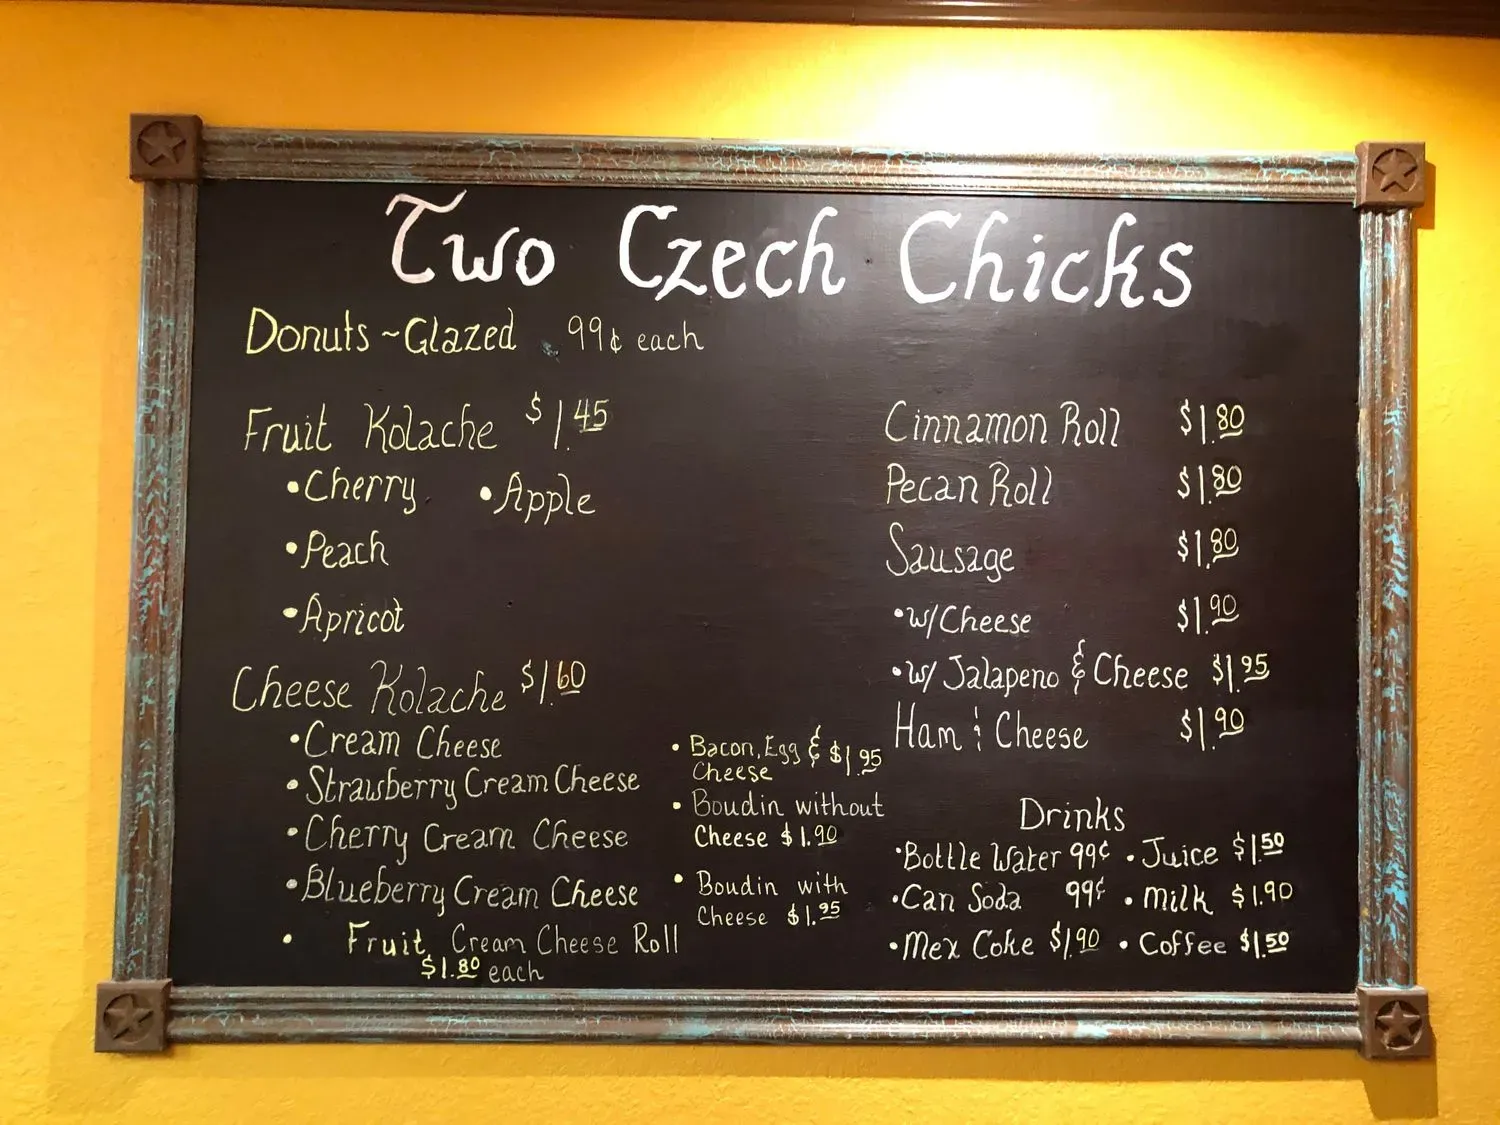 Two Czech Chicks
Donuts ~Glazed 99¢ each
Fruit Kolache $1.45
•Cherry •Apple
•Peach
•Apricot
Cheese Kolache $1.60
•Cream Cheese
•Strawberry Cream Cheese
•Cherry Cream Cheese
•Blueberry Cream Cheese
• Fruit Cream Cheese Roll
$1.80 each
• Bacon, Egg & $1.95
Cheese
• Boudin without
Cheese $1.90
• Boudin with
Cheese $1.95
Cinnamon Roll $1.80
Pecan Roll $1.80
Sausage $1.80
•w/Cheese $1.90
•w/ Jalapeno & Cheese $1.95
Ham & Cheese $1.90
Drinks
•Bottle Water 99¢ •Juice $1.50
•Can Soda 99¢ •Milk $1.90
•Mex Coke $1.90 •Coffee $1.50